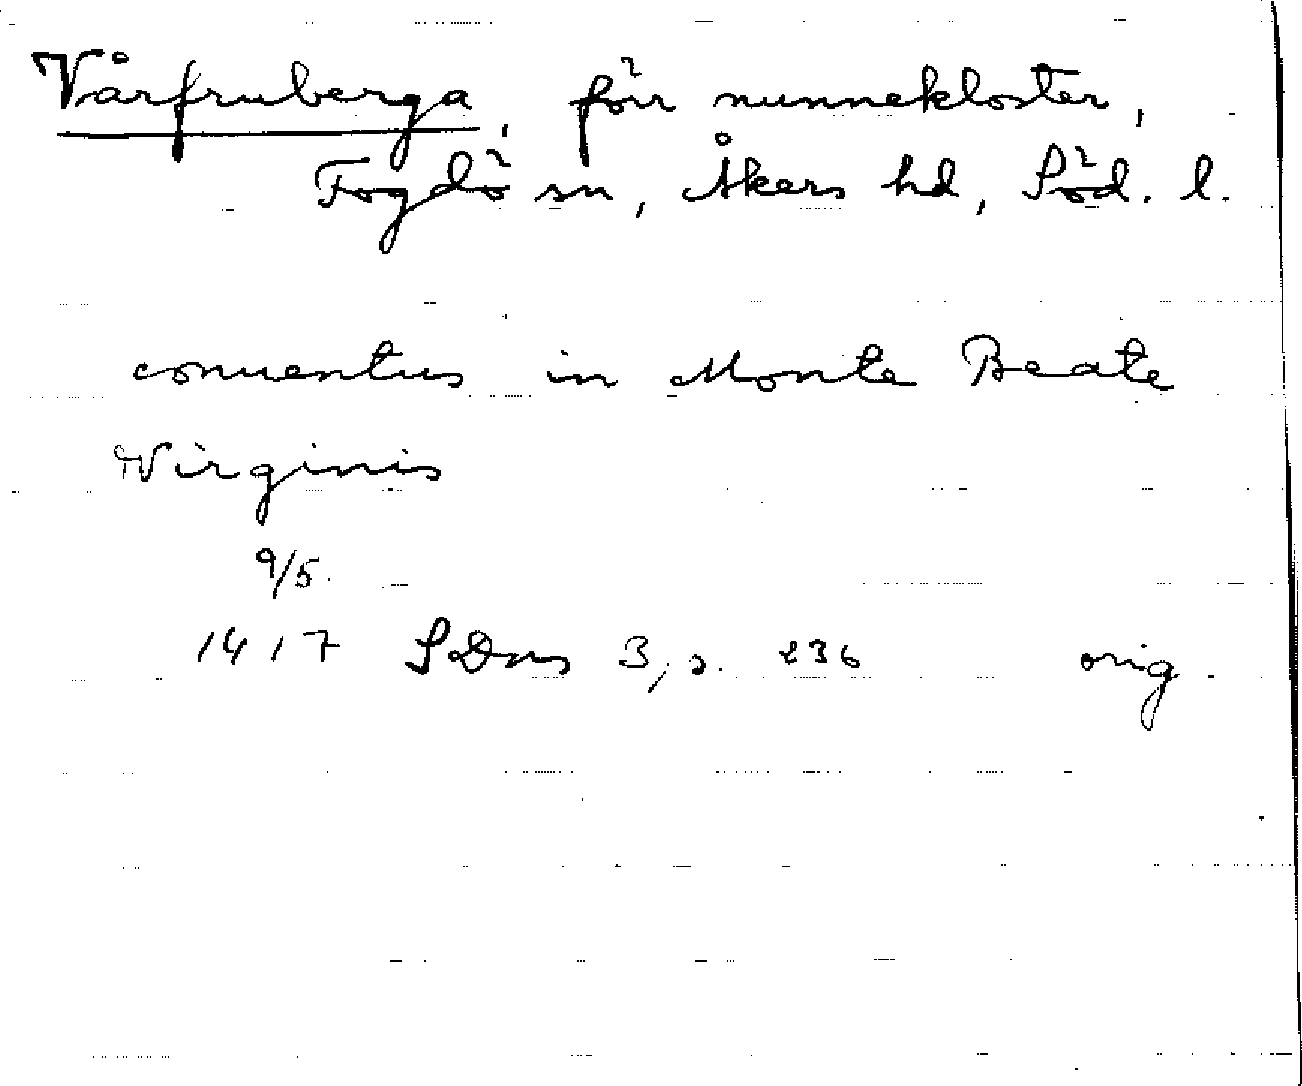 Vårfruberga, förr nunnekloster,
Fogdö sn, Åkers hd, Söd. l.
conuentus in Monte Beate
Virginis
9/5.
1417 SDns 3, s. 236 orig